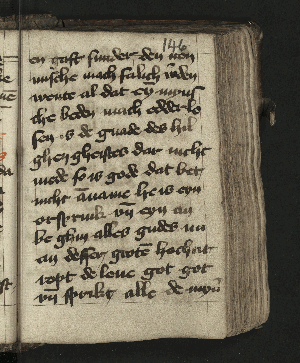 146
en gast sunder den nen
minsche mach salich werden
wente al dat ey mynsche
che beden mach edder le
sen is de gnade des hil
ghen gheistes dar nicht
mede so is gode dat bet
nicht āname he is eyn
orsprink vn̄ eyn an
be ghin alles gudes in
an desser groten hochtit
ropt de leue got got
vn̄ sprikt alle de myn